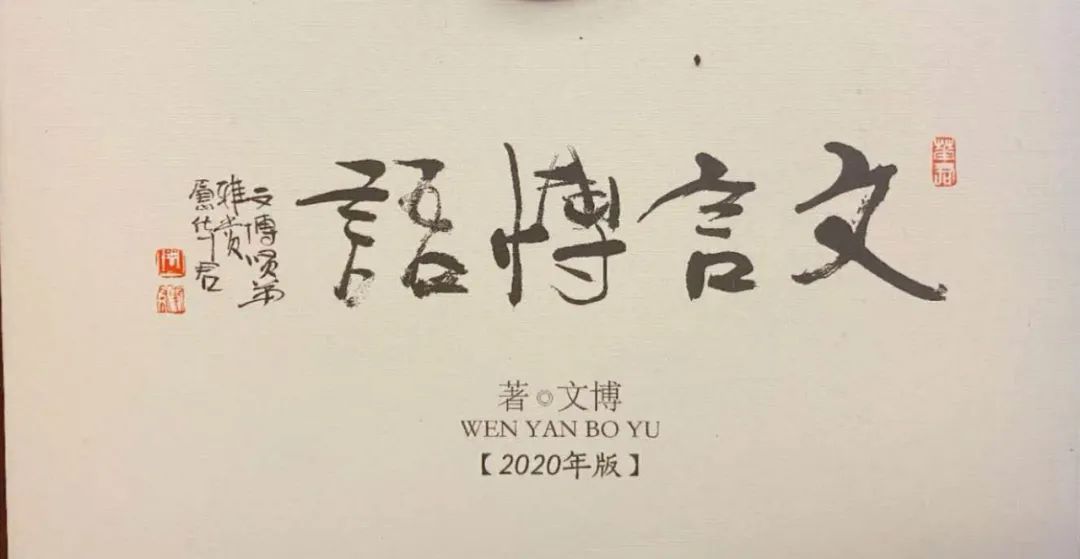 文言博語
文博贤弟
雅赏
华君
著◎文博
WEN YAN BO YU
【2020年版】